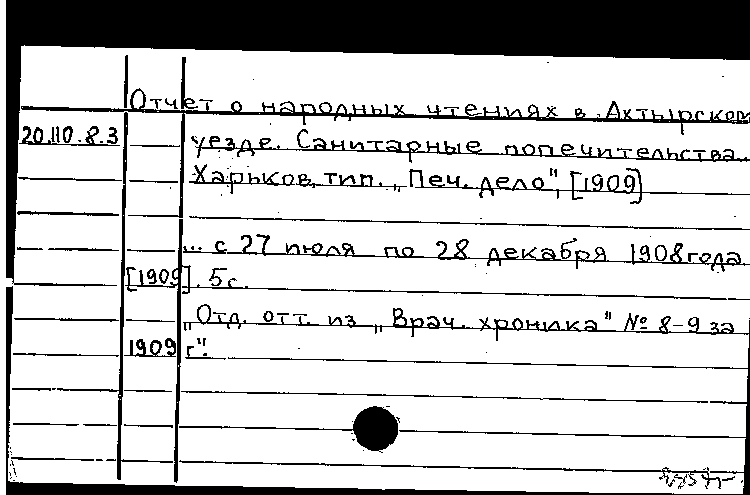 Отчет о народных чтениях в Ахтырском
20.110.8.3 уезде. Санитарные попечительства.
Харьков, тип. „Печ. дело", [1909]
... с 27 июля по 28 декабря 1908 года
[1909]. 5с.
„Отд. отт. из „Врач. хроника" № 8-9 за
1909 г".